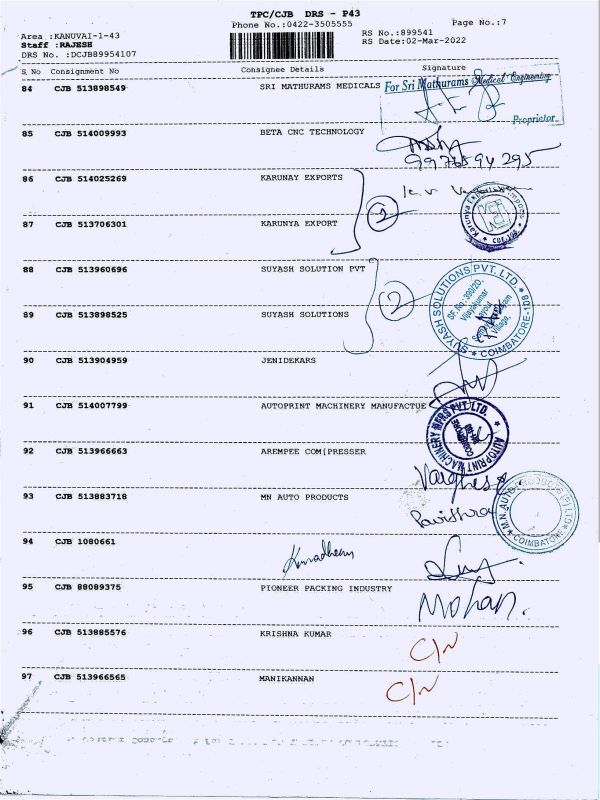 TPC/CJB DRS - P43
Phone No.:0422-3505555
Page No.:7
Area :KANUVAI-1-43
RS No.:899541
Staff :RAJESH
RS Date:02-Mar-2022
DRS No. :DCJB89954107
S.No Consignment No Consignee Details Signature
84 CJB 513898549 SRI MATHURAMS MEDICALS
For Sri Mathurams Medical Engineering
Proprietor
85 CJB 514009993 BETA CNC TECHNOLOGY
9976594295
86 CJB 514025269 KARUNAY EXPORTS
2
87 CJB 513706301 KARUNYA EXPORT
88 CJB 513960696 SUYASH SOLUTION PVT
2
SUYASH SOLUTIONS PVT. LTD. * COIMBATORE-108 *
SF.No: 390/2D,
Vijayakumar
Village,
89 CJB 513898525 SUYASH SOLUTIONS
90 CJB 513904959 JENIDEKARS
91 CJB 514007799 AUTOPRINT MACHINERY MANUFACTUE
AUTOPRINT MACHINERY MFRS PVT. LTD.
92 CJB 513966663 AREMPEE COM[PRESSER
Varghese
93 CJB 513883718 MN AUTO PRODUCTS
Pavithra
M.N. AUTO PRODUCTS (P) LTD * COIMBATORE *
94 CJB 1080661
95 CJB 88089375 PIONEER PACKING INDUSTRY
Mohan.
96 CJB 513885576 KRISHNA KUMAR
C/N
97 CJB 513966565 MANIKANNAN
C/N